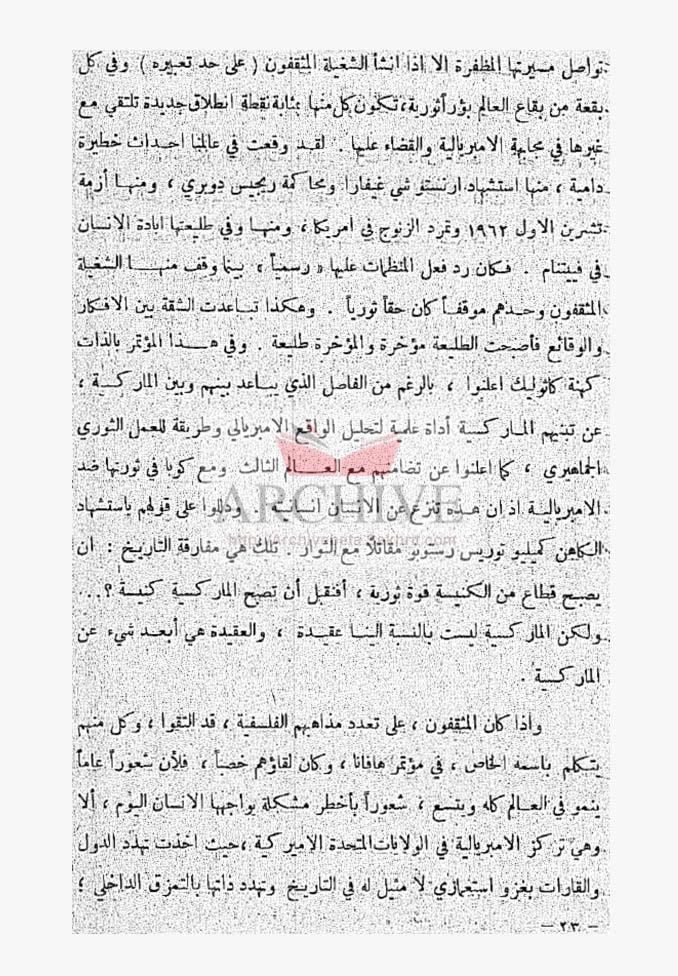 تواصل مسيرتها المظفرة الا اذا انشأ الشغيلة المثقفون ( على حد تعبيره ) وفي كل
بقعة من بقاع العالم بؤراً ثورية، تكون كل منها بمثابة نقطة انطلاق جديدة تلتقي مع
غيرها في مجابهة الامبريالية والقضاء عليها . لقد وقعت في عالمنا احداث خطيرة
دامية ، منها استشهاد ارنستو شي غيفارا ومحاكمة ريجيس دوبري ، ومنها أزمة
تشرين الاول ١٩٦٢ وتمرد الزنوج في امريكا ، ومنها وفي طليعتها ابادة الانسان
في فييتنام . فكان رد فعل المنظمات عليها « رسمياً » بينما وقف منها الشغيلة
المثقفون وحدهم موقفاً كان حقاً ثورياً . وهكذا تباعدت الشقة بين الافكار
والوقائع فأصبحت الطليعة مؤخرة والمؤخرة طليعة . وفي هذا المؤتمر بالذات
كهنة كاثوليك اعلنوا ، بالرغم من الفاصل الذي يباعد بينهم وبين الماركسية ،
عن تبنيهم الماركسية أداة علمية لتحليل الواقع الامبريالي وطريقة للعمل الثوري
الجماهيري ، كما اعلنوا عن تضامنهم مع العالم الثالث ومع كوبا في ثورتها ضد
الامبريالية اذ ان هذه تنزع عن الانسان انسانيته . ودللوا على قولهم باستشهاد
الكاهن كميليو توريس رستوبو مقاتلاً مع الثوار . تلك هي مفارقة التاريخ : ان
يصبح قطاع من الكنيسة قوة ثورية ، أفنقبل أن تصبح الماركسية كنيسة ؟...
ولكن الماركسية ليست بالنسبة الينا عقيدة ، والعقيدة هي أبعد شيء عن
الماركسية .
واذا كان المثقفون ، على تعدد مذاهبهم الفلسفية ، قد التقوا ، وكل منهم
يتكلم باسمه الخاص ، في مؤتمر هافانا ، وكان لقاؤهم خصباً ، فلأن شعوراً عاماً
ينمو في العالم كله ويتسع ، شعوراً بأخطر مشكلة يواجهها الانسان اليوم ، ألا
وهي تركز الامبريالية في الولايات المتحدة الاميركية ، حيث اخذت تهدد الدول
والقارات بغزو استعماري لا مثيل له في التاريخ وتهدد ذاتها بالتمزق الداخلي ؛
— ٢٣ —
ARCHIVE
http://archivebeta.Sakhrit.com